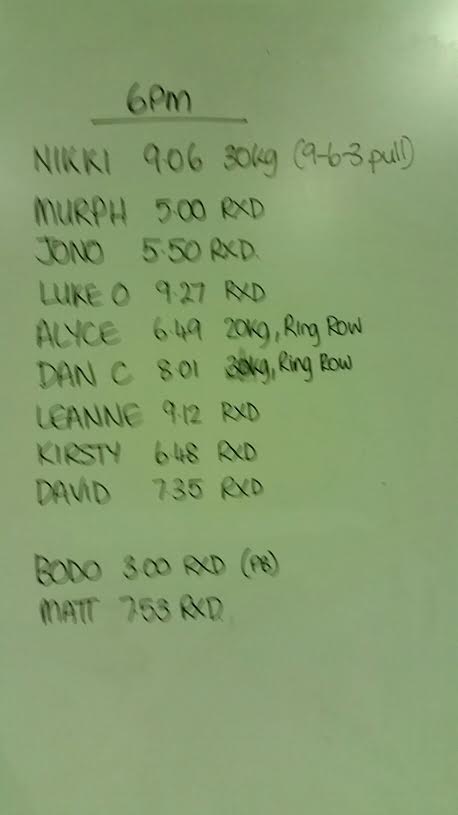 6pm
NIKKI 9.06 30kg (9-6-3 pull)
MURPH 5.00 RXD
JONO 5.50 RXD.
LUKE O 9.27 RXD
ALYCE 6.49 20kg, Ring Row
DAN C 8.01 30kg, Ring Row
LEANNE 9.12 RXD
KIRSTY 6.48 RXD
DAVID 7.35 RXD
BODO 3.00 RXD (PB)
MATT 7.53 RXD.